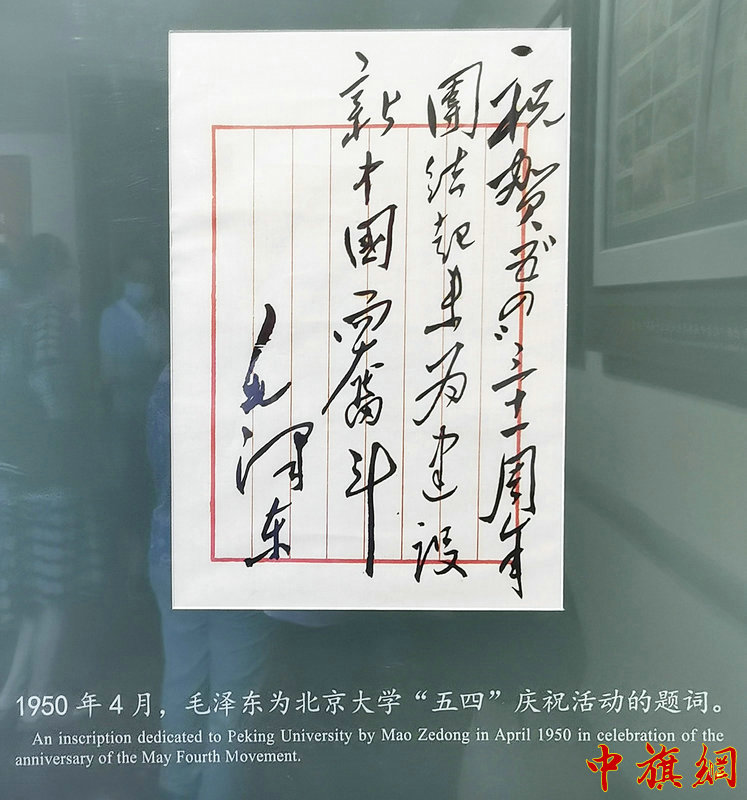 祝贺“五四”三十一周年
團结起来为建设
新中國而奮斗
毛泽东
1950年4月，毛泽东为北京大学“五四”庆祝活动的题词。
An inscription dedicated to Peking University by Mao Zedong in April 1950 in celebration of the
anniversary of the May Fourth Movement.
中旗網